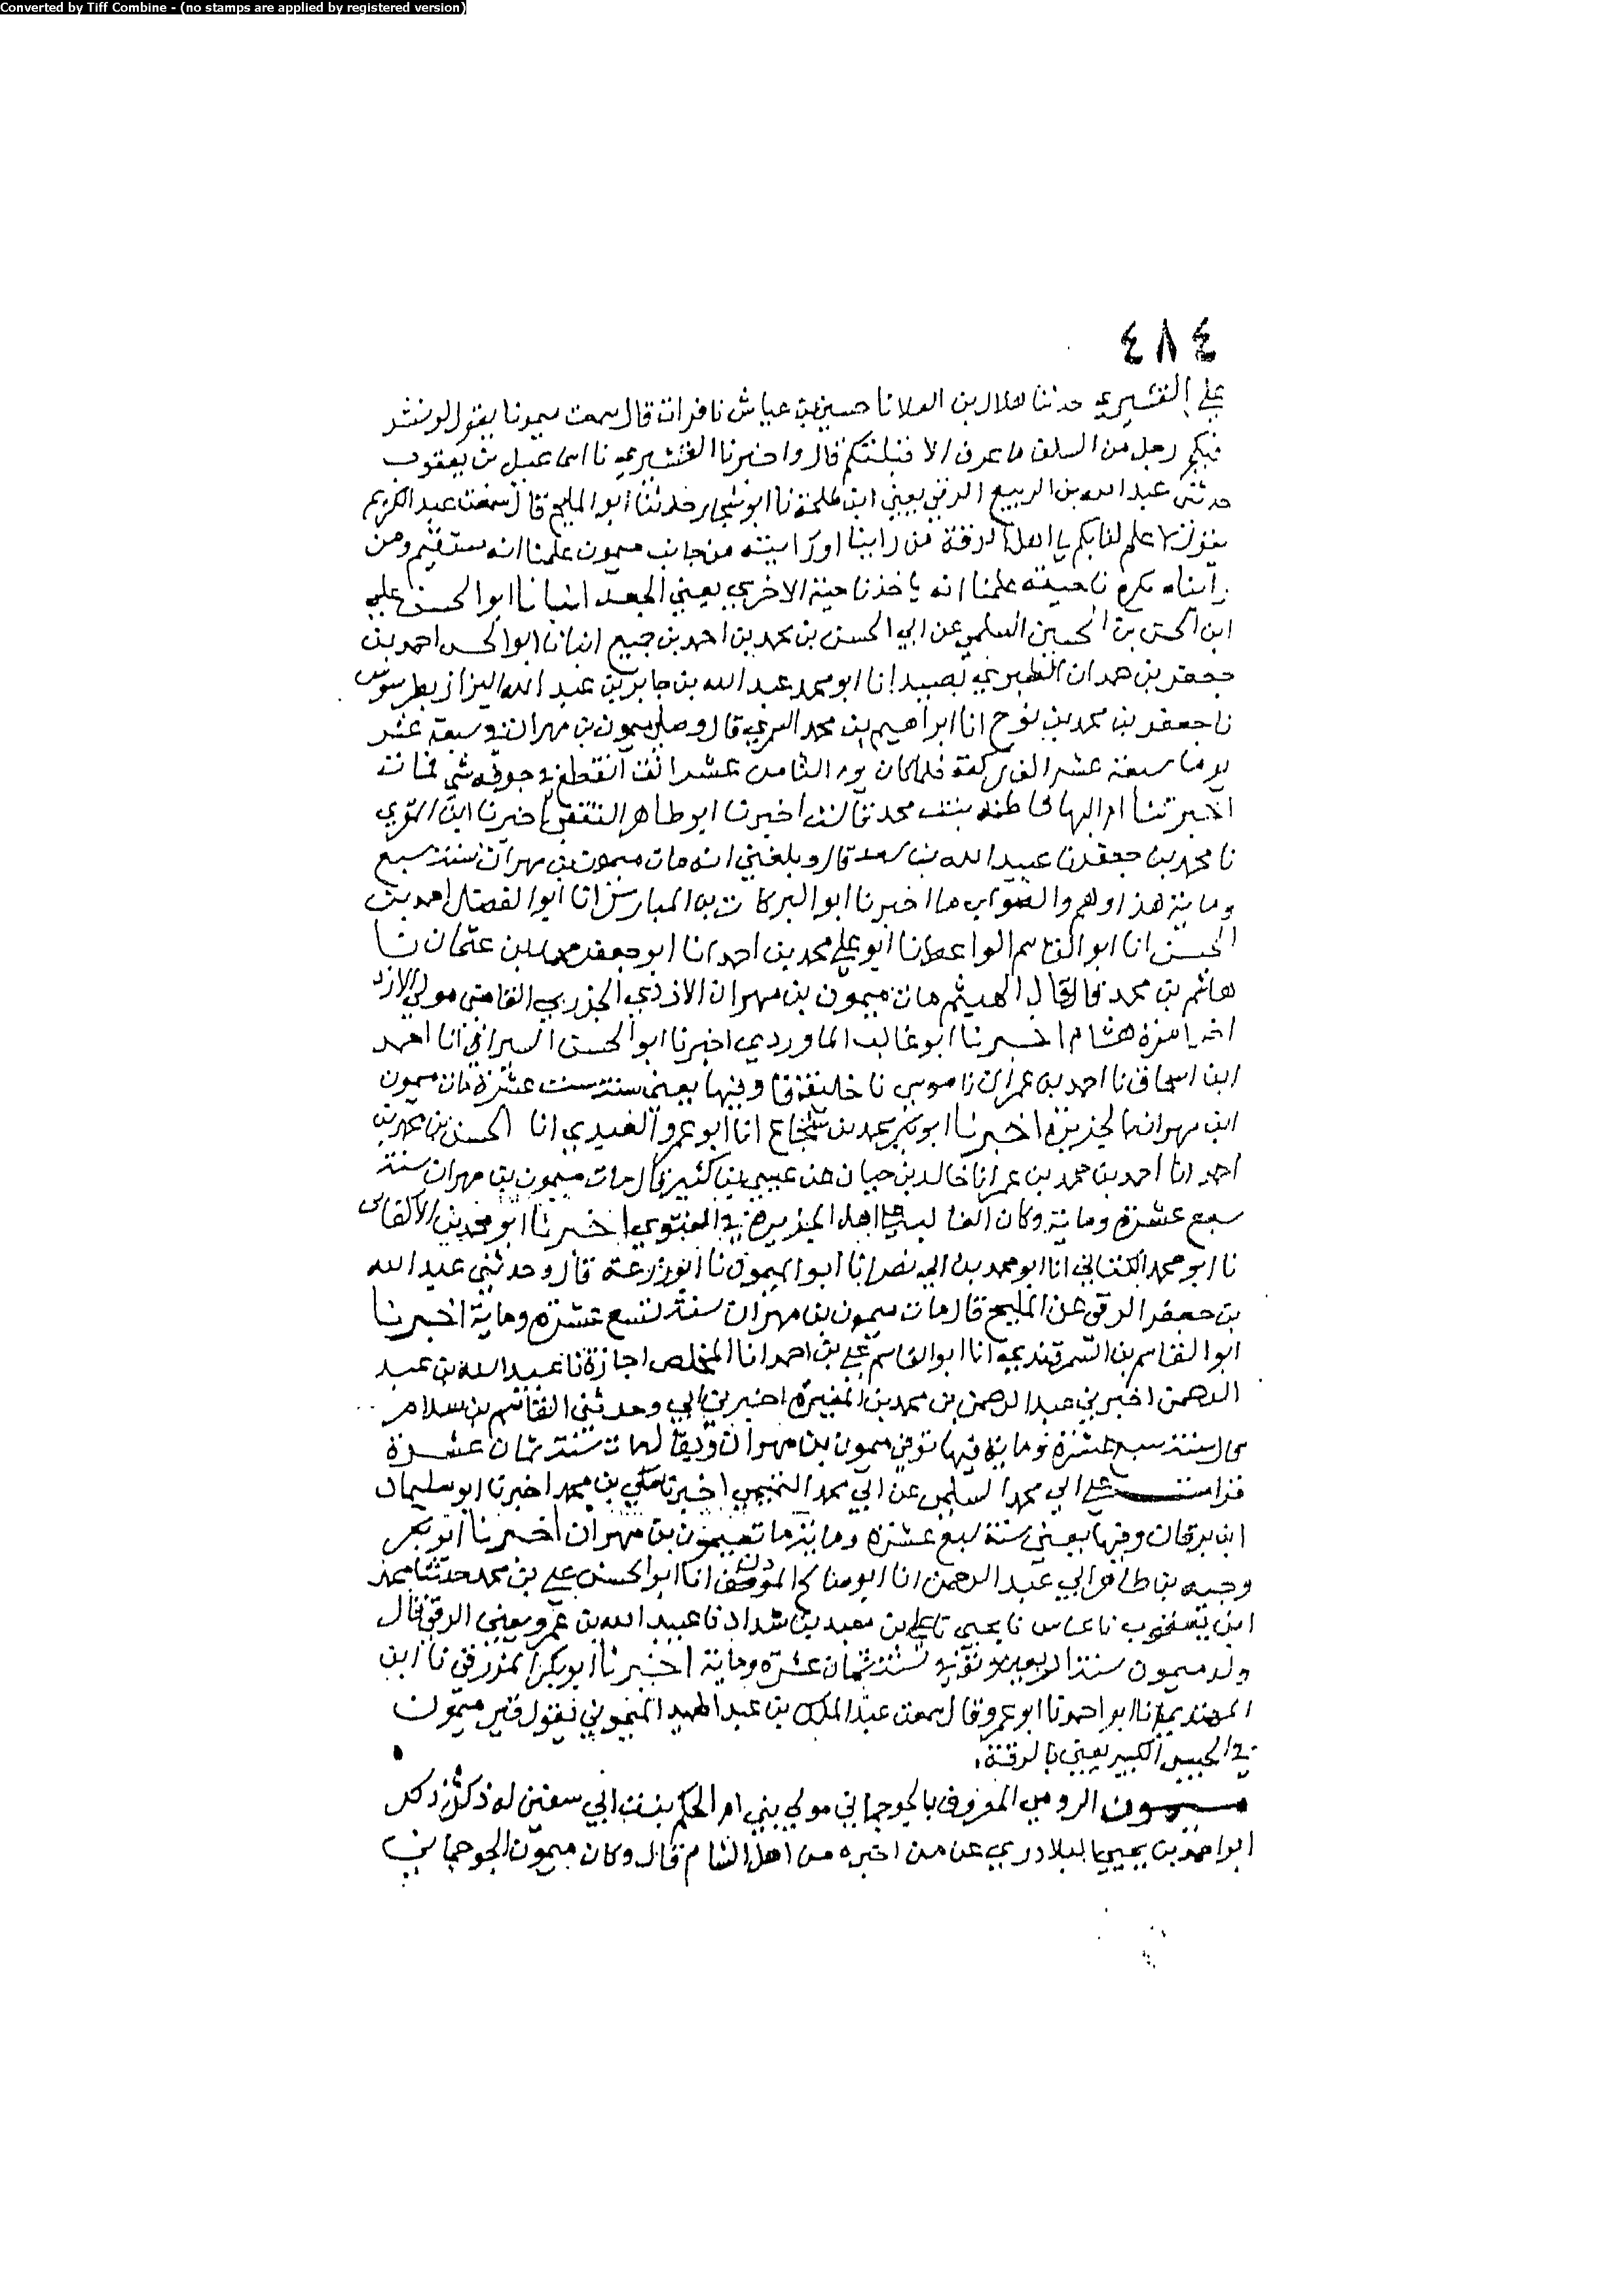 Converted by Tiff Combine - (no stamps are applied by registered version)
٤٨٤
علي القشيري حدثنا هلال بن العلا نا حسين بن عياش نا فرات قال سمعت ميمونا يقول لو نشر
فيكم رجل من السلف ما عرف الا قبلتكم قال واخبرنا القشيري نا اسماعيل بن يعقوب
حدثني عبد الله بن الربيع الرقي يعني ابن طلحة نا ابو حدثنا ابو المليح قال سمعت عبد الكريم
يقول لا علم لنا بكم يا اهل الرقة من راينا او رايته من جانب ميمون علمنا انه مستقيم ومن
رايناه يكره ناحيته علمنا انه ياخذ ناحية الاخرى يعني الجعد انبانا ابو الحسن علي
ابن الحسن بن الحسين السلمي عن ابي الحسن بن محمد بن احمد بن جميع انبانا ابو الحسن احمد بن
جعفر بن حمدان الطبري بصيدا نا ابو محمد عبد الله بن جابر بن عبد الله البزاز بطرسوس
نا جعفر بن محمد بن نوح انا ابراهيم بن محمد قال وصلى ميمون بن مهران في سبعة عشر
يوما سبعة عشر الف ركعة فلما كان يوم الثامن عشر انقطع في جوفه شي فمات
اخبرتنا ام البها فاطمة بنت محمد قالت اخبرنا ابو طاهر الثقفي اخبرنا ابن المقري
نا محمد بن جعفر نا عبيد الله بن سعد قال وبلغني انه مات ميمون بن مهران سنة سبع
وماية هذا وهم والصواب ما اخبرنا ابو البركات بن المبارك انا ابو الفضل احمد بن
الحسن انا ابو القاسم الواعظ انا ابو علي محمد بن احمد انا ابو جعفر محمد بن عثمان نا
هاشم بن محمد قال قال الهيثم مات ميمون بن مهران الازدي الجزري القاضي مولى الازد
هشام اخبرنا ابو غالب الماوردي اخبرنا ابو الحسن السيرافي انا احمد
ابن اسحاق نا احمد بن عمران نا موسى نا خليفة قا وفيها يعني سنة ست عشرة مات ميمون
ابن مهران بالجزيرة اخبرنا ابو بكر محمد بن شجاع انا ابو عمرو العبدي انا الحسن بن محمد بن
احمد انا احمد بن محمد بن عمر نا خالد بن حيان عن عيسى بن كثير قال مات ميمون بن مهران سنة
سبع عشرة وماية وكان الغالب على اهل الجزيرة في الفتوى اخبرنا ابو محمد بن الاكفاني
نا ابو محمد الكتاني انا ابو محمد بن ابي نصر انا ابو الميمون نا ابو زرعة قال وحدثني عبد الله
بن جعفر الرقي عن المليح قال مات ميمون بن مهران سنة تسع عشرة وماية اخبرنا
ابو القاسم بن السمرقندي انا ابو القاسم علي بن احمد انا المخلص اجازة نا عبيد الله بن عبد
الرحمن اخبرني عبد الرحمن بن محمد بن المغيرة اخبرني ابي وحدثني القاسم بن سلام
قال سنة سبع عشرة وماية فيها توفي ميمون بن مهران ويقال مات سنة ثمان عشرة
قرات على ابي محمد السلمي عن ابي محمد التميمي اخبرنا مكي بن محمد اخبرنا ابو سليمان
قال وفيها يعني سنة سبع عشرة وماية مات ميمون بن مهران اخبرنا ابو بكر
وجيه بن طاهر ابي عبد الرحمن انا ابو صالح المؤذن انا ابو الحسن علي بن محمد حدثنا محمد
ابن يعقوب نا عباس نا يحيى نا علي بن معبد بن شداد نا عبيد الله بن عمرو يعني الرقي قال
ولد ميمون سنة اربعين وتوفي سنة ثمان عشرة وماية اخبرنا ابو بكر المزرفي نا ابن
المهتدي انا ابو احمد نا ابو عمرو قال سمعت عبد الملك بن عبد الحميد الميموني يقول قبر ميمون
في الكبير يعني بالرقة
ميمون الرومي المعروف بالجرجماني مولى بني ام الحكم بنت ابي سفين له ذكر ذكر
ابو احمد بن يحيى البلادري عن من اخبره من اهل الشام قال وكان ميمون الجرجماني